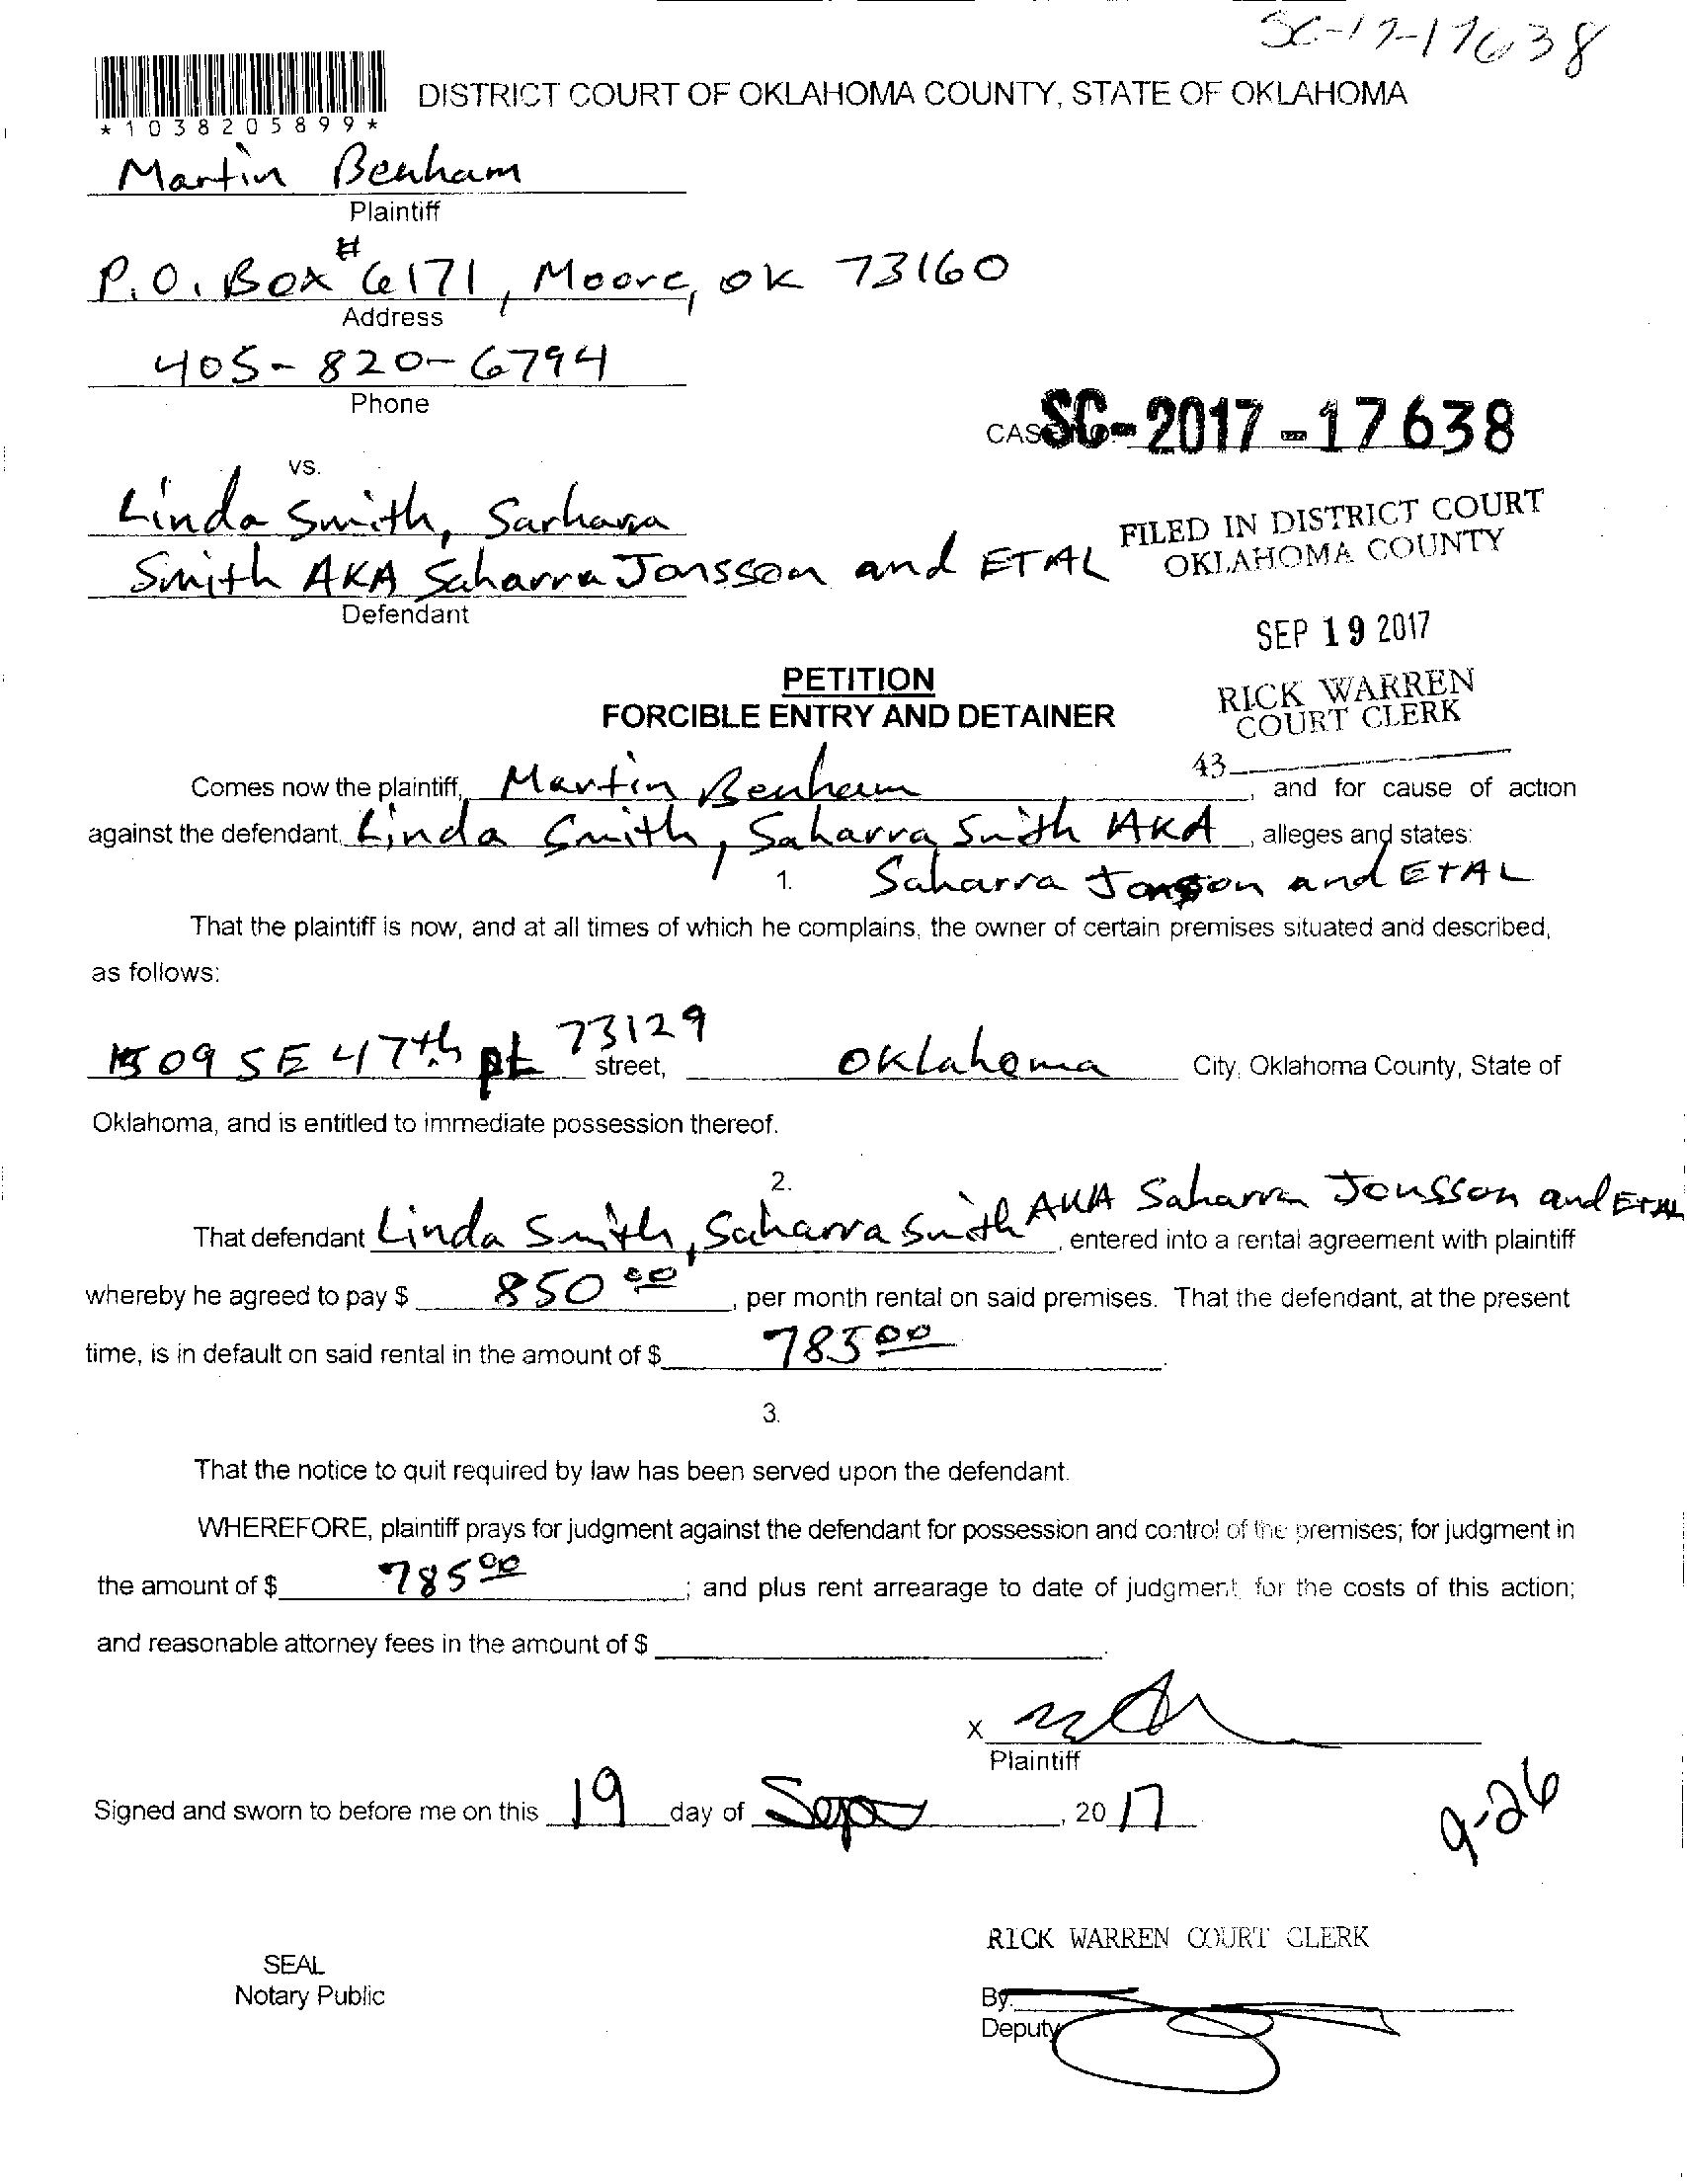 SC-17-17638
DISTRICT COURT OF OKLAHOMA COUNTY, STATE OF OKLAHOMA
*1038205899*
Martin Benham
Plaintiff
P.O. Box # 6171, Moore, OK 73160
Address
405-820-6794
Phone
CASE NO. SC-2017-17638
vs.
Linda Smith, Sarhara
Smith AKA Saharra Jonsson and ETAL
Defendant
FILED IN DISTRICT COURT
OKLAHOMA COUNTY
SEP 19 2017
RICK WARREN
COURT CLERK
43
PETITION
FORCIBLE ENTRY AND DETAINER
Comes now the plaintiff, Martin Benham, and for cause of action
against the defendant, Linda Smith, Saharra Smith AKA, alleges and states:
1. Saharra Jonsson and ETAL
That the plaintiff is now, and at all times of which he complains, the owner of certain premises situated and described,
as follows:
1509 SE 47th pl 73129 street, Oklahoma City, Oklahoma County, State of
Oklahoma, and is entitled to immediate possession thereof.
2.
That defendant Linda Smith, Saharra Smith AKA Saharra Jonsson and ETAL, entered into a rental agreement with plaintiff
whereby he agreed to pay $ 850 00, per month rental on said premises. That the defendant, at the present
time, is in default on said rental in the amount of $ 785 00.
3.
That the notice to quit required by law has been served upon the defendant.
WHEREFORE, plaintiff prays for judgment against the defendant for possession and control of the premises; for judgment in
the amount of $ 785 00; and plus rent arrearage to date of judgment, for the costs of this action;
and reasonable attorney fees in the amount of $.
X
Plaintiff
Signed and sworn to before me on this 19 day of Sept, 20 17
9-26
RICK WARREN COURT CLERK
SEAL
Notary Public
By
Deputy